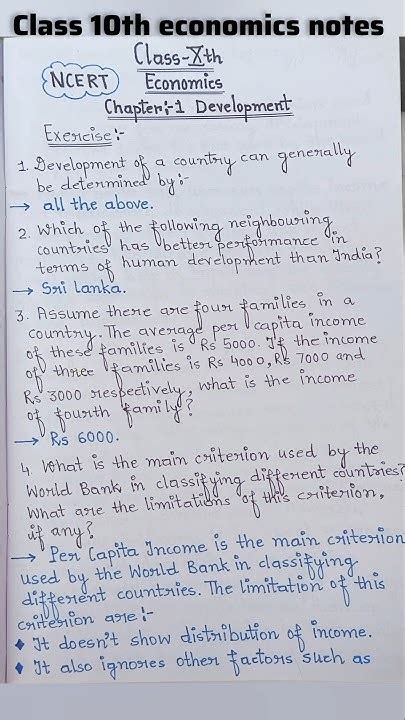 Class 10th economics notes
Class-Xth
NCERT
Economics
Chapter:-1 Development
Exercise:-
1. Development of a country can generally
be determined by:-
→ all the above.
2. Which of the following neighbouring
countries has better performance in
terms of human development than India?
→ Sri Lanka.
3. Assume there are four families in a
country. The average per capita income
of these families is Rs 5000. If the income
of three families is Rs 4000, Rs 7000 and
Rs 3000 respectively, what is the income
of fourth family?
→ Rs 6000.
4. What is the main criterion used by the
World Bank in classifying different countries?
What are the limitations of this criterion,
if any?
→ Per Capita Income is the main criterion
used by the World Bank in classifying
different countries. The limitation of this
criterion are:-
◆ It doesn't show distribution of income.
◆ It also ignores other factors such as